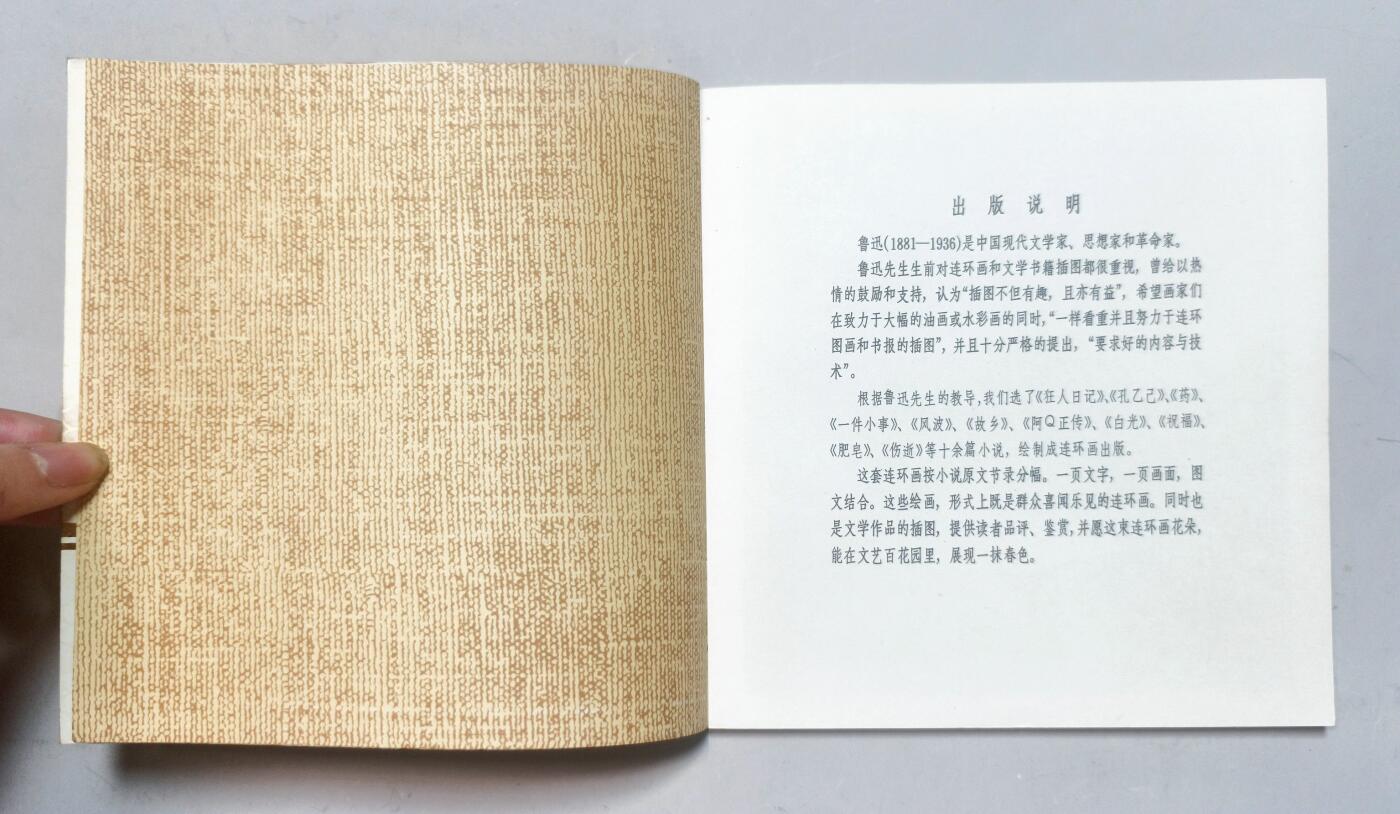 出版说明
鲁迅(1881—1936)是中国现代文学家、思想家和革命家。
鲁迅先生生前对连环画和文学书籍插图都很重视，曾给以热
情的鼓励和支持，认为“插图不但有趣，且亦有益”，希望画家们
在致力于大幅的油画或水彩画的同时，“一样看重并且努力于连环
图画和书报的插图”，并且十分严格的提出，“要求好的内容与技
术”。
根据鲁迅先生的教导，我们选了《狂人日记》、《孔乙己》、《药》、
《一件小事》、《风波》、《故乡》、《阿Q正传》、《白光》、《祝福》、
《肥皂》、《伤逝》等十余篇小说，绘制成连环画出版。
这套连环画按小说原文节录分幅。一页文字，一页画面，图
文结合。这些绘画，形式上既是群众喜闻乐见的连环画。同时也
是文学作品的插图，提供读者品评、鉴赏，并愿这束连环画花朵，
能在文艺百花园里，展现一抹春色。